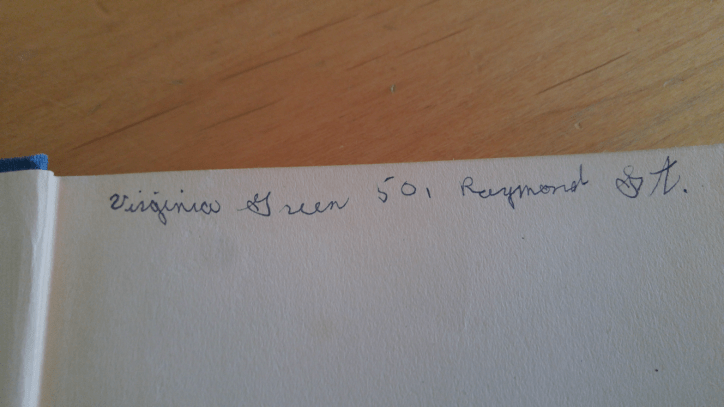 Virginia Green 501 Raymond St.